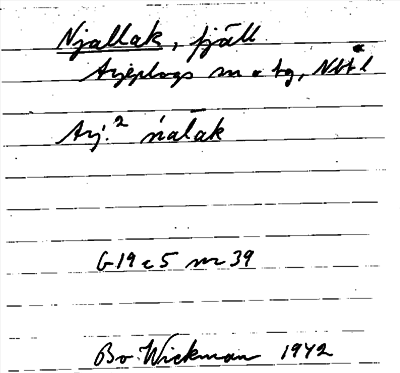 Njallak, fjäll
Arjeplogs sn o tg, Nbt l
Arj.² ńalak
G 19 c 5 nr 39
Bo Wickman 1942